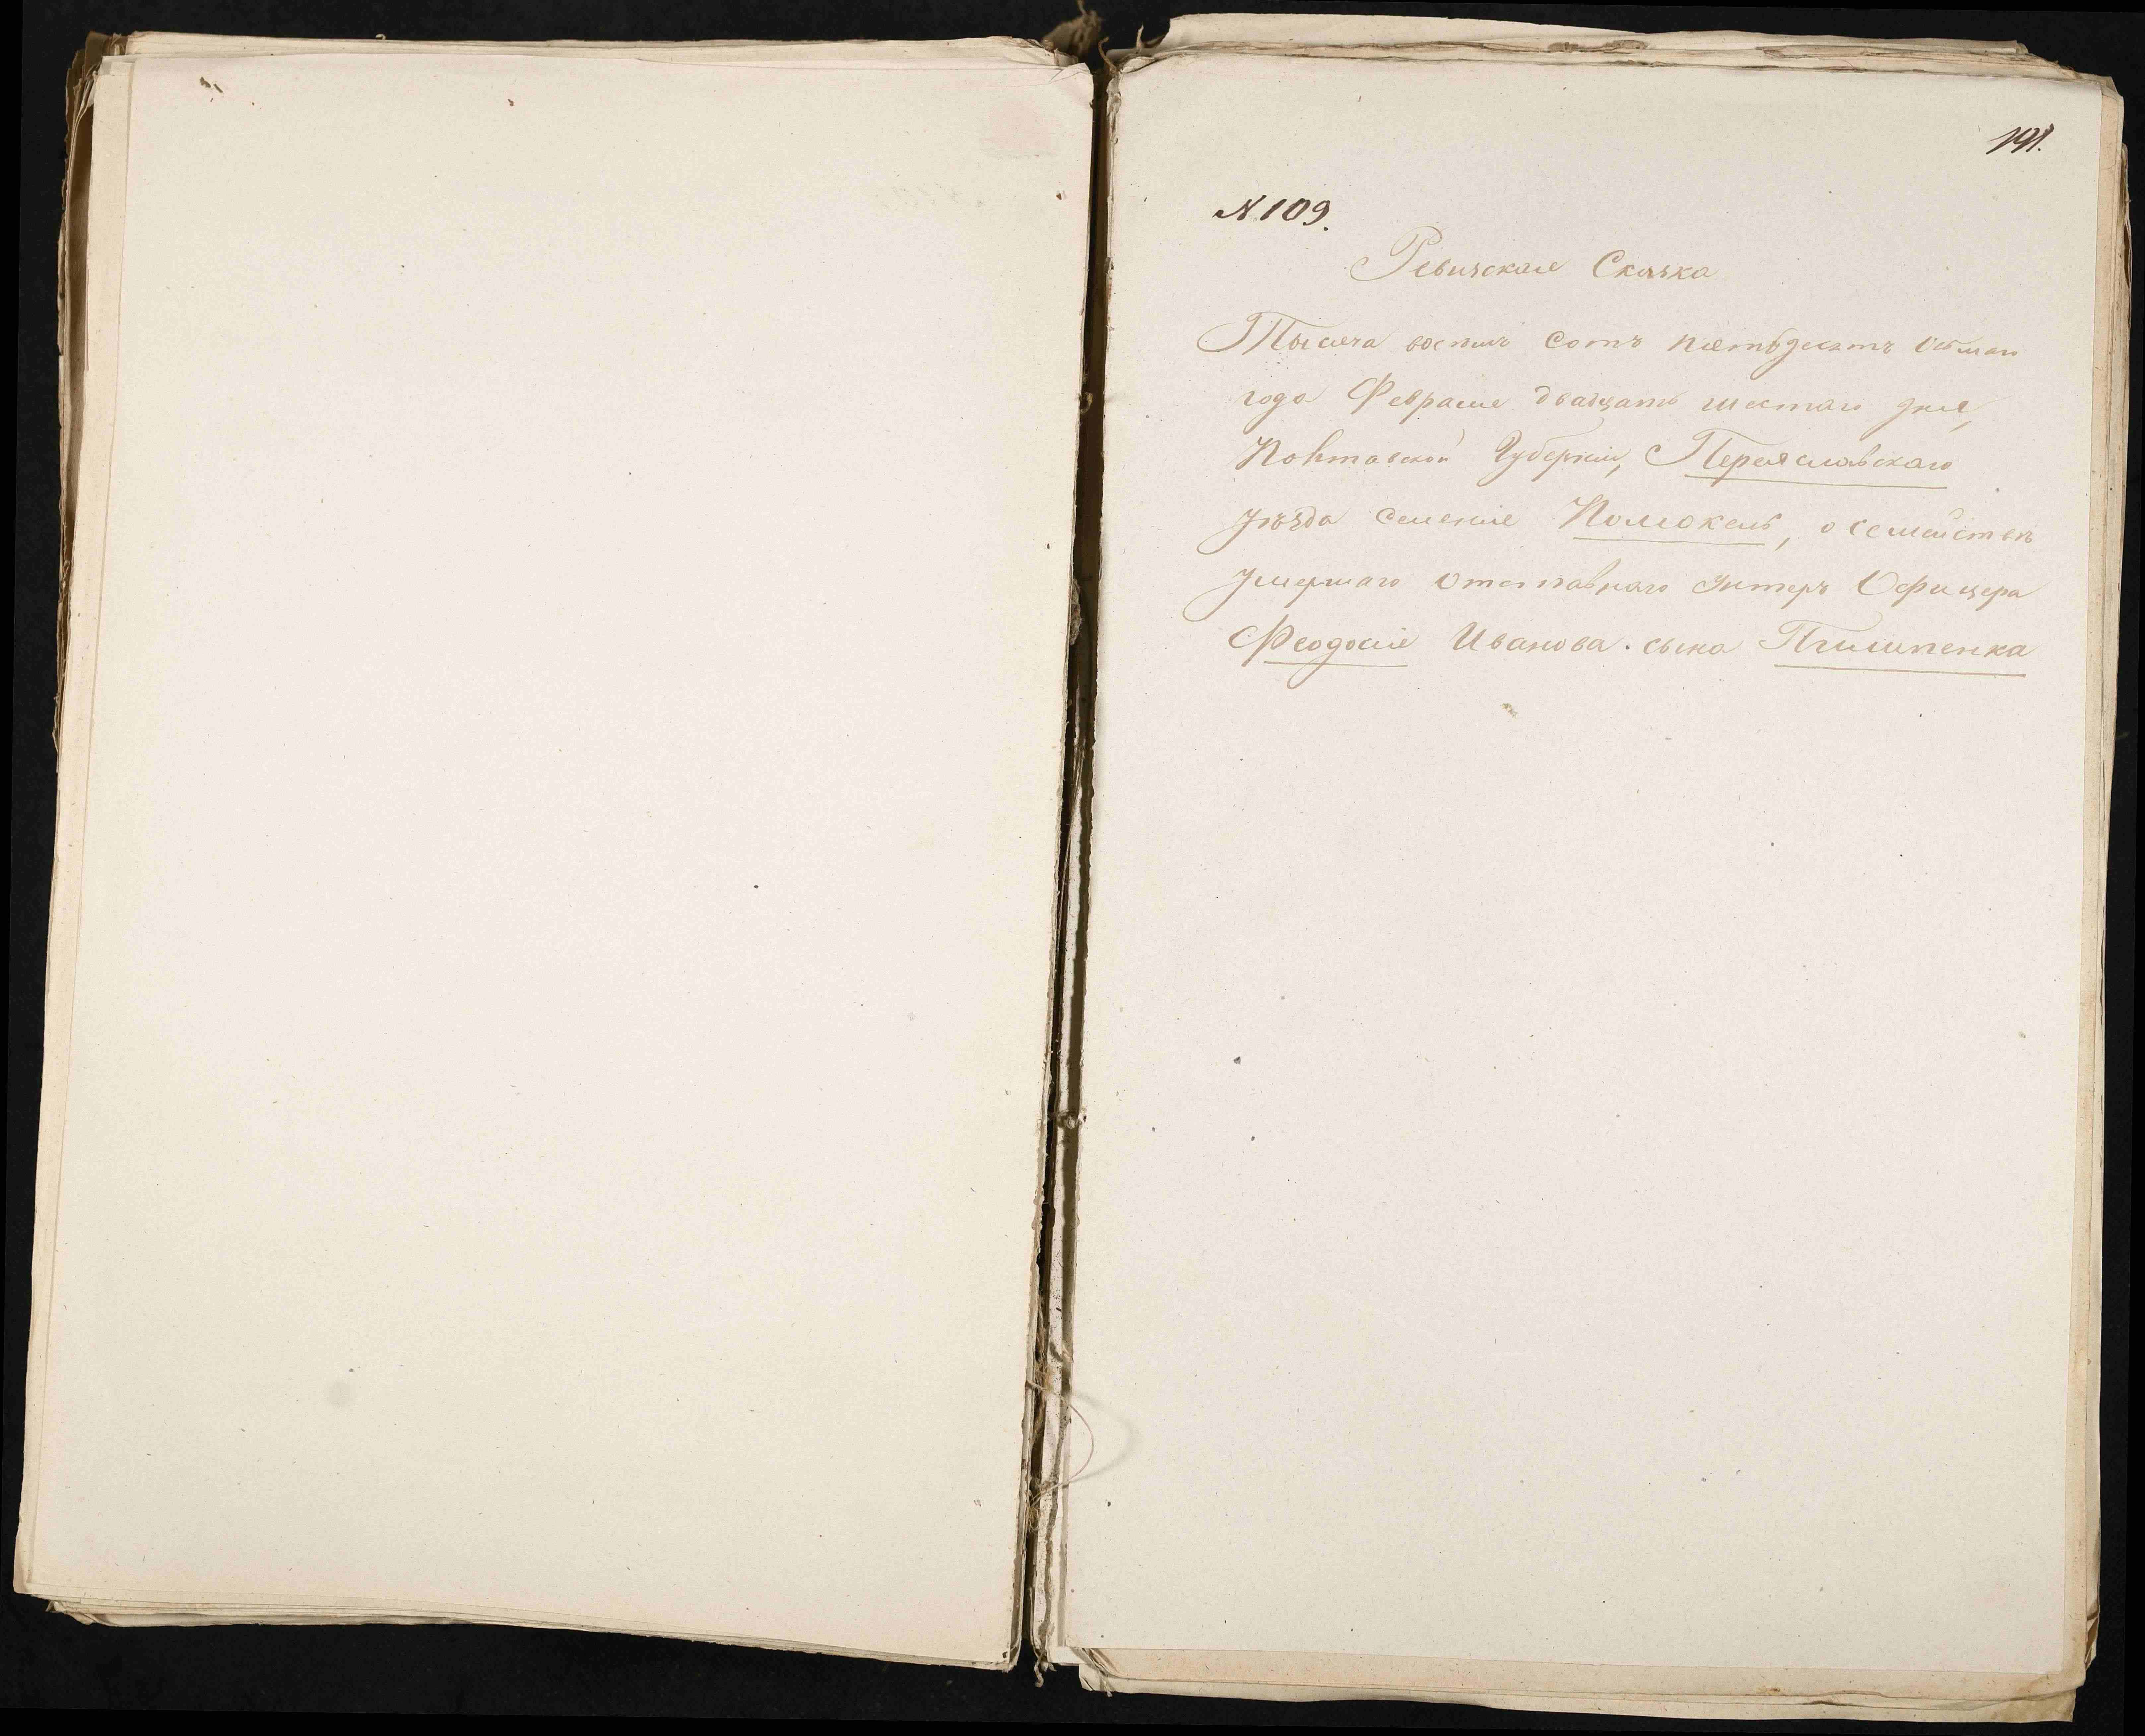 191.
№ 109.
Ревизская Сказка
Тысяча восемь сотъ пятьдесятъ осьмаго
года Февраля двадцать шестаго дня,
Полтавской Губерніи, Переяславскаго
уѣзда селенія Помокель, о семействѣ
умершаго отставнаго Унтеръ Офицера
Феодосія Иванова сына Пилипенка